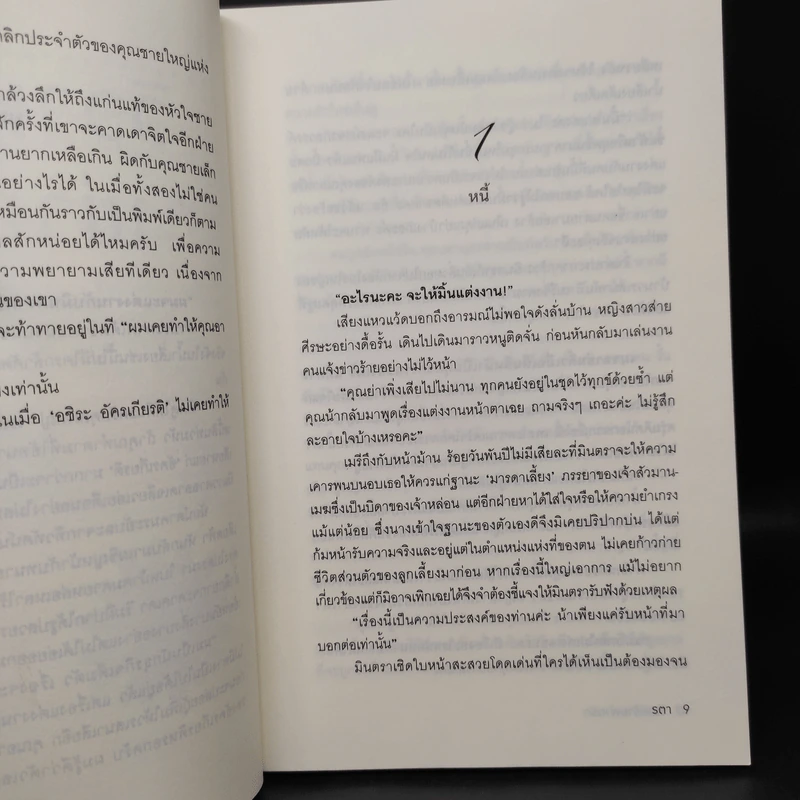 ลิกประจำตัวของคุณชายใหญ่แห่ง
ล้วงลึกให้ถึงแก่นแท้ของหัวใจชาย
สักครั้งที่เขาจะคาดเดาจิตใจอีกฝ่าย
านยากเหลือเกิน ผิดกับคุณชายเล็ก
นอย่างไรได้ ในเมื่อทั้งสองไม่ใช่คน
หมือนกันราวกับเป็นพิมพ์เดียวก็ตาม
ลสักหน่อยได้ไหมครับ เพื่อความ
ความพยายามเสียทีเดียว เนื่องจาก
นของเขา
จะท้าทายอยู่ในที “ผมเคยทำให้คุณอา
งเท่านั้น
นเมื่อ ‘อชิระ อัครเกียรติ’ ไม่เคยทำให้
1
หนี้
“อะไรนะคะ จะให้มิ้นแต่งงาน!”
เสียงแหวแว้ดบอกถึงอารมณ์ไม่พอใจดังลั่นบ้าน หญิงสาวส่าย
ศีรษะอย่างดื้อรั้น เดินไปเดินมาราวหนูติดจั่น ก่อนหันกลับมาเล่นงาน
คนแจ้งข่าวร้ายอย่างไม่ไว้หน้า
“คุณย่าเพิ่งเสียไปไม่นาน ทุกคนยังอยู่ในชุดไว้ทุกข์ด้วยซ้ำ แต่
คุณน้ากลับมาพูดเรื่องแต่งงานหน้าตาเฉย ถามจริงๆ เถอะค่ะ ไม่รู้สึก
ละอายใจบ้างเหรอคะ”
เมรีถึงกับหน้าม้าน ร้อยวันพันปีไม่มีเสียละที่มินตราจะให้ความ
เคารพนบนอบเธอให้ควรแก่ฐานะ ‘มารดาเลี้ยง’ ภรรยาของเจ้าสัวมาน-
เมฆซึ่งเป็นบิดาของเจ้าหล่อน แต่อีกฝ่ายหาได้ใส่ใจหรือให้ความยำเกรง
แม้แต่น้อย ซึ่งนางเข้าใจฐานะของตัวเองดีจึงมิเคยปริปากบ่น ได้แต่
ก้มหน้ารับความจริงและอยู่แต่ในตำแหน่งแห่งที่ของตน ไม่เคยก้าวก่าย
ชีวิตส่วนตัวของลูกเลี้ยงมาก่อน หากเรื่องนี้ใหญ่เอาการ แม้ไม่อยาก
เกี่ยวข้องแต่ก็มิอาจเพิกเฉยได้จึงจำต้องชี้แจงให้มินตรารับฟังด้วยเหตุผล
“เรื่องนี้เป็นความประสงค์ของท่านค่ะ น้าเพียงแค่รับหน้าที่มา
บอกต่อเท่านั้น”
มินตราเชิดใบหน้าสะสวยโดดเด่นที่ใครได้เห็นเป็นต้องมองจน
รตา 9